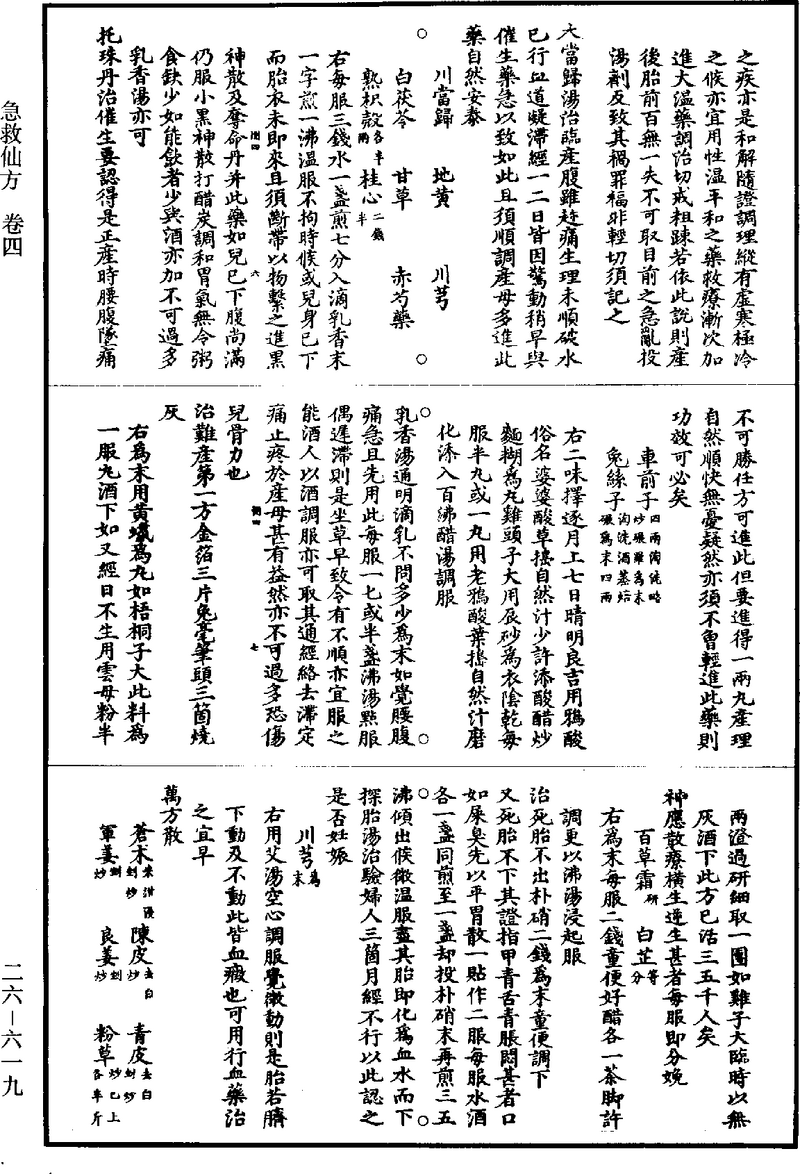 急救仙方 卷四
二六—六一九
之疾亦是和解隨證調理縱有虛寒極冷
之候亦宜用性溫平和之藥救療漸次加
進大溫藥調治切戒粗踈若依此說則產
後胎前百無一失不可取目前之急亂投
湯劑反致其禍罪福非輕切須記之
大當歸湯治臨產腹雖趂痛生理未順破水
已行血道凝滯經一二日皆因驚動稍早與
催生藥急以致如此且須順調產母多進此
藥自然安泰
川當歸 地黃 川芎
白茯苓 甘草 赤芍藥
熟枳殼各半兩 桂心二錢半
右每服三錢水一盞煎七分入滴乳香末
一字煎一沸溫服不拘時候或兒身已下
而胎衣未即來且須斷帶以物繫之進黑
神散及奪命丹并此藥如兒已下腹尚滿
仍服小黑神散打醋炭調和胃氣無令粥
食缺少如能飲者少與酒亦加不可過多
乳香湯亦可
托珠丹治催生要認得是正產時腰腹墜痛
不可勝任方可進此但要進得一兩丸產理
自然順快無憂疑然亦須不曾輕進此藥則
功效可必矣
車前子四兩淘洗略炒碾羅為末
兔絲子淘洗酒蒸焙碾為末四兩
右二味擇逐月上七日晴明良吉用鴉酸
俗名婆婆酸草搗自然汁少許添酸醋炒
麵糊為丸雞頭子大用辰砂為衣陰乾每
服半丸或一丸用老鴉酸葉搗自然汁磨
化添入百沸醋湯調服
乳香湯通明滴乳不問多少為末如覺腰腹
痛急且先用此每服一七或半盞沸湯點服
偶遲滯則是坐草早致令有不順亦宜服之
能酒人以酒調服亦可取其通經絡去滯定
痛止疼於產母甚有益然亦不可過多恐傷
兒骨力也
治難產第一方金箔三片兔毫筆頭三箇燒
灰
右為末用黃蠟為丸如梧桐子大此料為
一服丸酒下如又經日不生用雲母粉半
兩澄過研細取一團如雞子大臨時以無
灰酒下此方已活三五千人矣
神應散療橫生逆生甚者每服即分娩
百草霜研 白芷等分
右為末每服二錢童便好醋各一茶脚許
調更以沸湯浸起服
治死胎不出朴硝二錢為末童便調下
又死胎不下其證指甲青舌青脹悶甚者口
如屎臭先以平胃散一貼作二服每服水酒
各一盞同煎至一盞却投朴硝末再煎三五
沸傾出候微溫服盡其胎即化為血水而下
探胎湯治驗婦人三箇月經不行以此認之
是否妊娠
川芎為末
右用艾湯空心調服覺微動則是胎若臍
下動及不動此皆血瘕也可用行血藥治
之宜早
萬方散
蒼术米泔浸剉炒 陳皮去白炒 青皮去白剉炒
軍姜剉炒 良姜剉炒 粉草炒已上各半斤